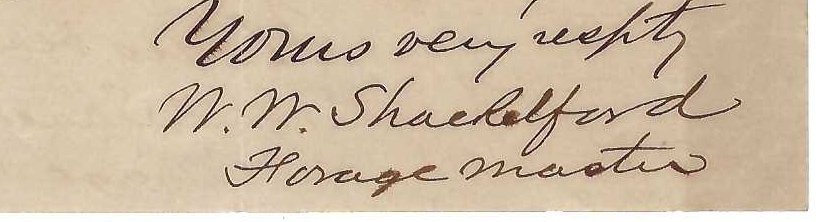 Yours very respty
W. W. Shackelford
Forage master